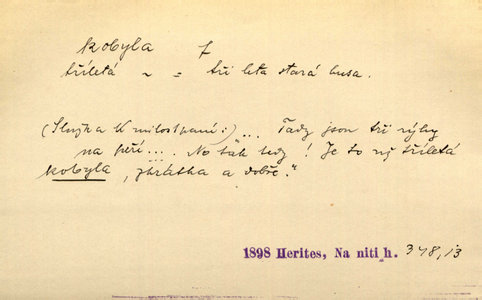 kobyla f
tříletá ~ = tři léta stará husa.
(Služka k milostpaní:) ... Tady jsou tři rýhy
na peří .... No tak tedy! Je to už tříletá
kobyla, zkrátka a dobře."
1898 Herites, Na niti h. 348,13